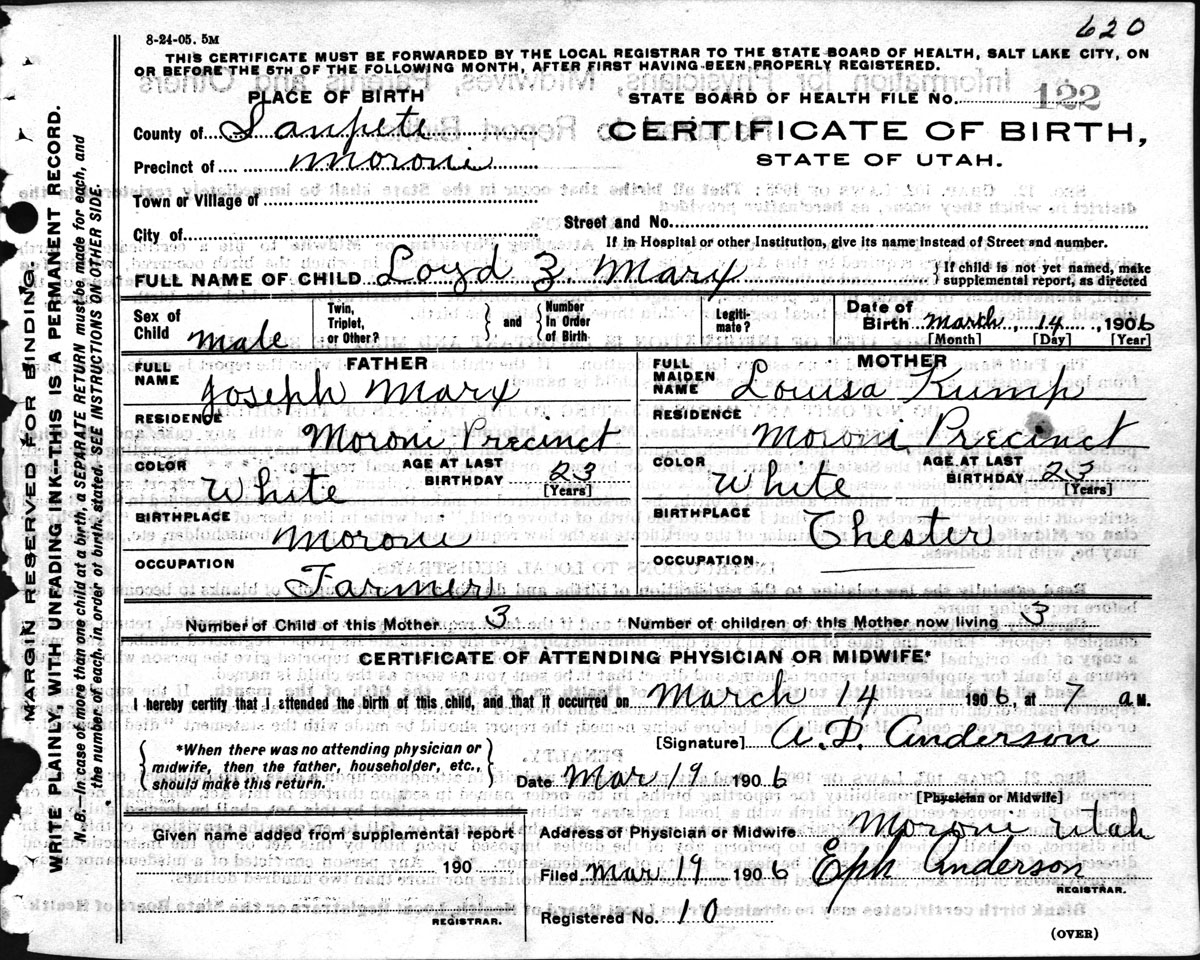 620
8-24-05. 5M
THIS CERTIFICATE MUST BE FORWARDED BY THE LOCAL REGISTRAR TO THE STATE BOARD OF HEALTH, SALT LAKE CITY, ON
OR BEFORE THE 5TH OF THE FOLLOWING MONTH, AFTER FIRST HAVING BEEN PROPERLY REGISTERED.
PLACE OF BIRTH
STATE BOARD OF HEALTH FILE No. 122
County of Sanpete
CERTIFICATE OF BIRTH,
Precinct of Moroni
STATE OF UTAH.
Town or Village of
City of
Street and No.
If in Hospital or other Institution, give its name instead of Street and number.
FULL NAME OF CHILD Loyd Z. Marx } If child is not yet named, make
supplemental report, as directed
Sex of Child Male
Twin, Triplet, or Other? } and { Number In Order of Birth
Legiti-mate?
Date of Birth March, 14, 1906
[Month] [Day] [Year]
FATHER
MOTHER
FULL NAME Joseph Marx
FULL MAIDEN NAME Louisa Kump
RESIDENCE Moroni Precinct
RESIDENCE Moroni Precinct
COLOR White AGE AT LAST BIRTHDAY 23 [Years]
COLOR White AGE AT LAST BIRTHDAY 23 [Years]
BIRTHPLACE Moroni
BIRTHPLACE Chester
OCCUPATION Farmer
OCCUPATION
Number of Child of this Mother 3
Number of children of this Mother now living 3
CERTIFICATE OF ATTENDING PHYSICIAN OR MIDWIFE*
I hereby certify that I attended the birth of this child, and that it occurred on March 14 1906, at 7 a M.
{ *When there was no attending physician or midwife, then the father, householder, etc., should make this return. }
[Signature] A. D. Anderson
Date Mar 19 1906
[Physician or Midwife]
Given name added from supplemental report
190
REGISTRAR.
Address of Physician or Midwife Moroni Utah
Filed Mar 19 1906 Eph Anderson
REGISTRAR.
Registered No. 10
(OVER)
MARGIN RESERVED FOR BINDING.
WRITE PLAINLY, WITH UNFADING INK—THIS IS A PERMANENT RECORD.
N. B.—In case of more than one child at a birth, a SEPARATE RETURN must be made for each, and
the number of each, in order of birth, stated. SEE INSTRUCTIONS ON OTHER SIDE.